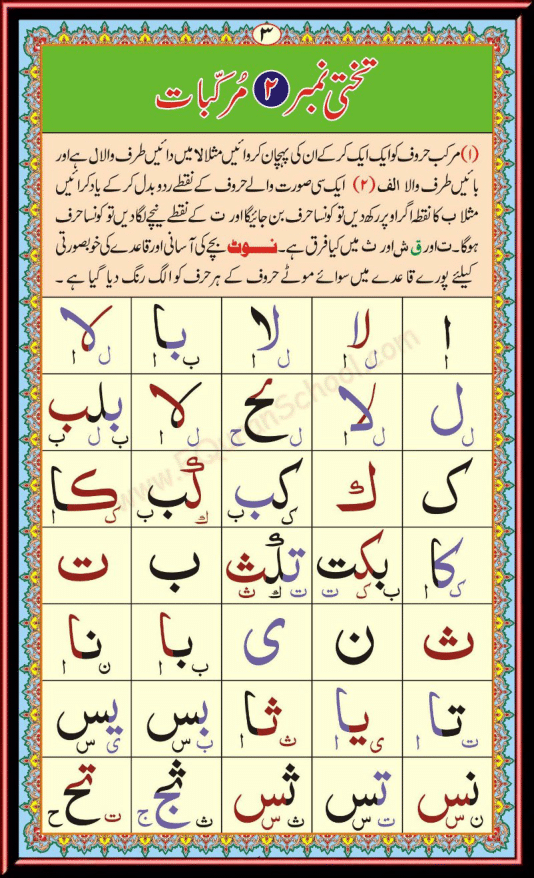 ٣
تختی نمبر ٢ مُرکّبات
(١) مرکب حروف کو ایک ایک کر کے ان کی پہچان کروائیں مثلا لا میں دائیں طرف والا ل ہے اور
بائیں طرف والا الف (٢) ایک سی صورت والے حروف کے نقطے ردو بدل کر کے یاد کرائیں
مثلا ب کا نقطہ اگر اوپر رکھ دیں تو کونسا حرف بن جائیگا اور ت کے نقطے نیچے لگا دیں تو کونسا حرف
ہوگا۔ ت اور ق ش اور ث میں کیا فرق ہے۔ نوٹ بچے کی آسانی اور قاعدے کی خوبصورتی
کیلئے پورے قاعدے میں سوائے موٹے حروف کے ہر حرف کو الگ رنگ دیا گیا ہے۔
ا لا لا با لا
ل ا ل ا ب ا ل ا
ل لا لح لا بلب
ل ل ا ل ح ل ا ب ل ب
ک ك کب كب کا
ک ب ك ب ک ا
کا بکت تكث ب ت
ک ا ب ک ت ت ك ث
ث ن ی با نا
ب ا ن ا
تا یا ثا بس یس
ت ا ی ا ث ا ب س ی س
نس تس ثس ثج تح
ن س ت س ث س ث ج ت ح
www.eQuranSchool.com